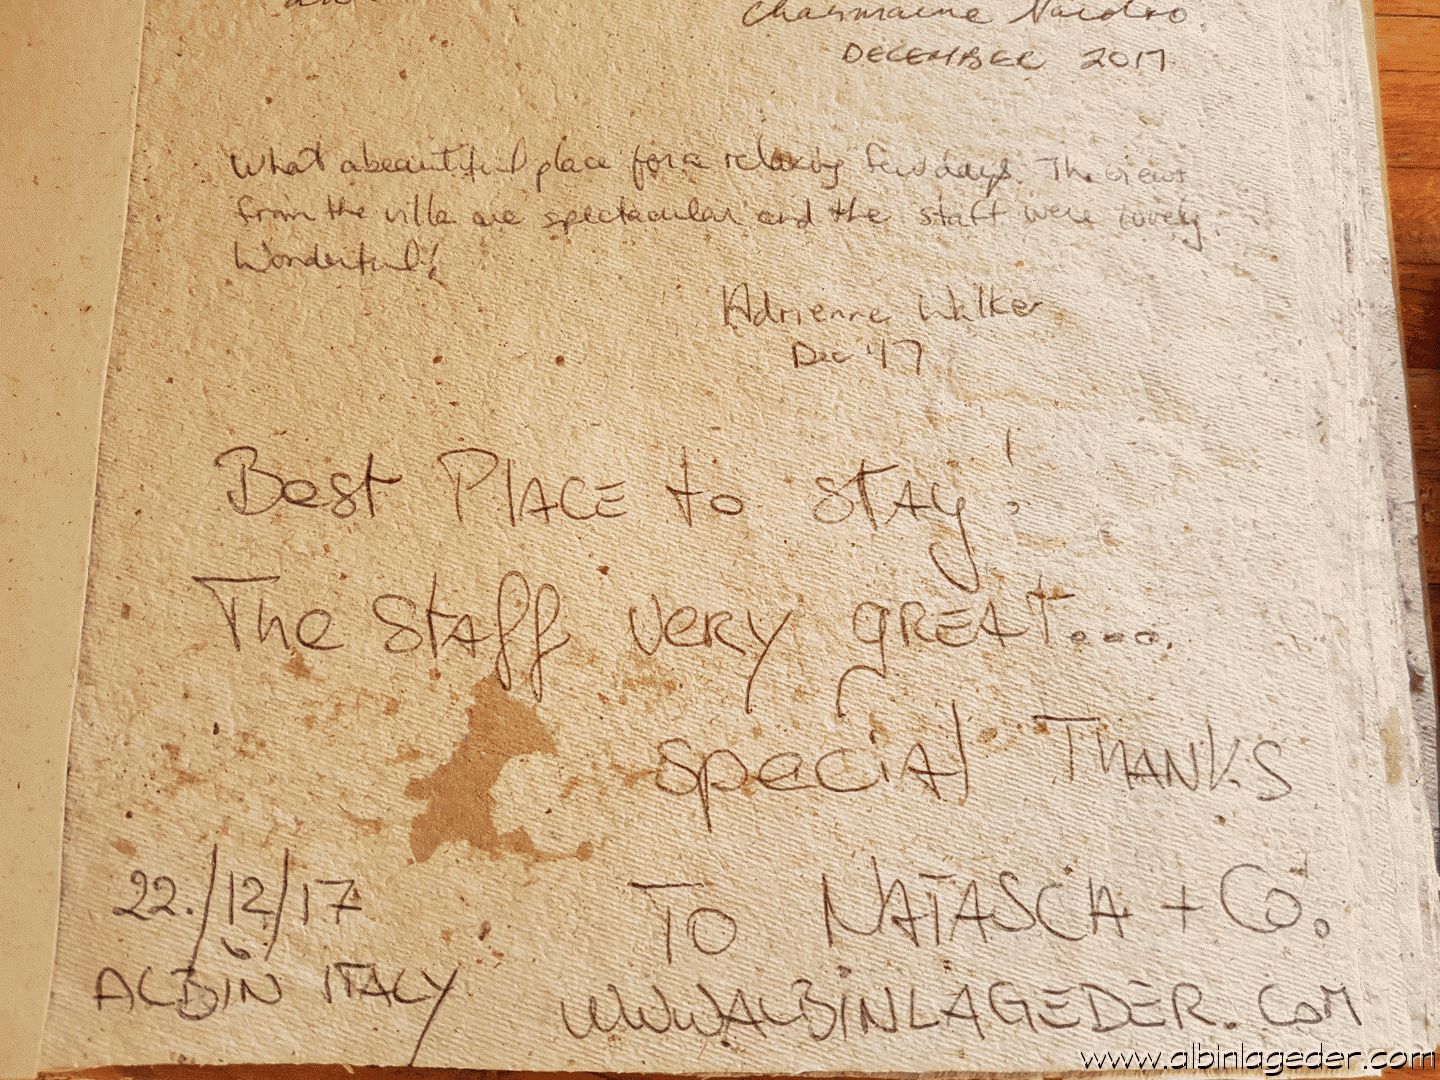 Charmaine
DECEMBER 2017
What a beautiful place for a relaxing few days. The views
from the villa are spectacular and the staff were lovely.
Wonderful!
Adrienne Walker
Dec '17
Best PLACE to stAy!
The Staff very GREAT....
Special THANKS
22./12/17
TO NATASCA + Co.
ALBIN ITALY
WWW.ALBINLAGEDER.COM
www.albinlageder.com